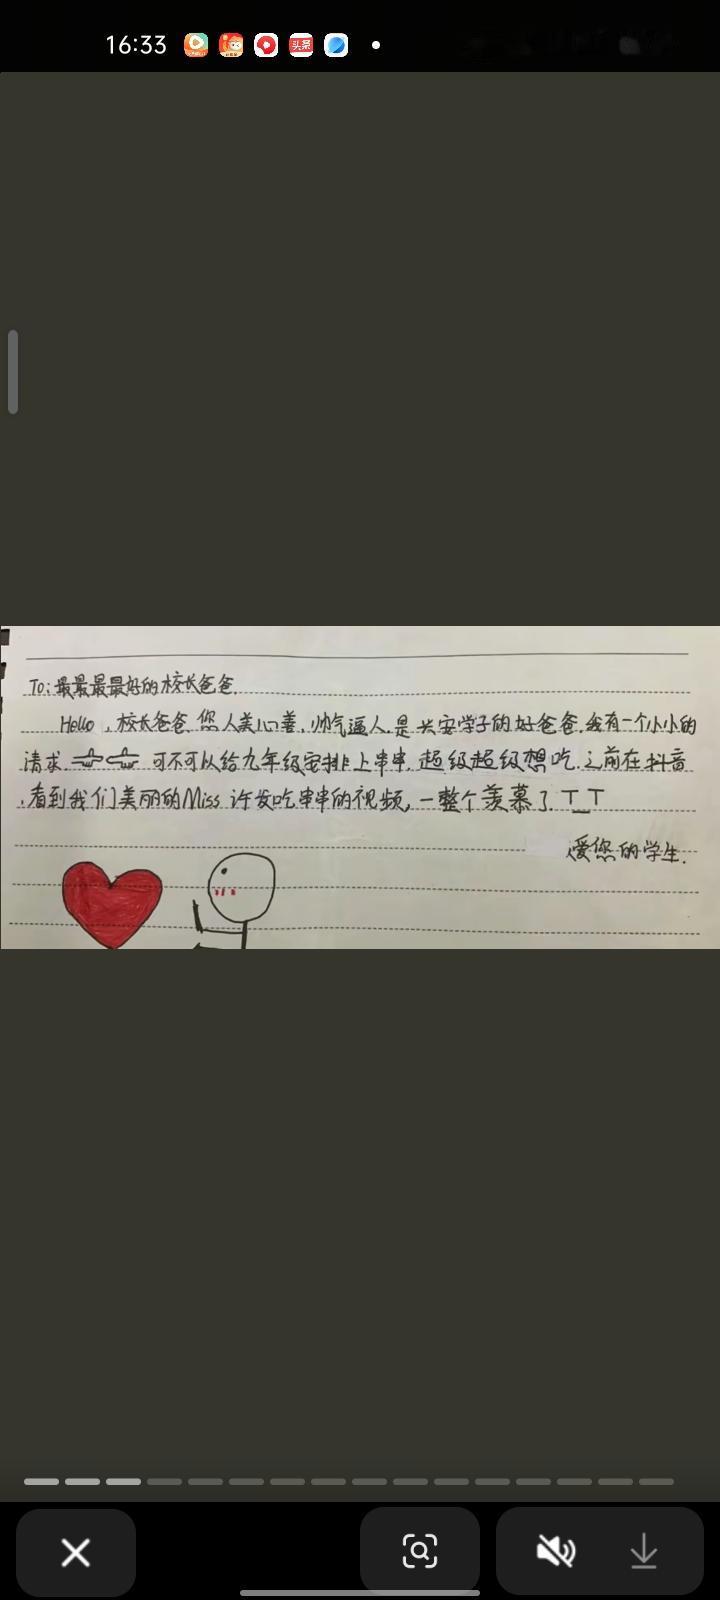 16:33
头条
To:最最最最好的校长爸爸.
Hello,校长爸爸您人美心善,帅气逼人.是兴安学子的好爸爸.我有一个小小的
请求 可不可以给九年级安排上串串.超级超级想吃.之前在抖音
看到我们美丽的Miss许发吃串串的视频,一整个羡慕了.T_T
爱您的学生.